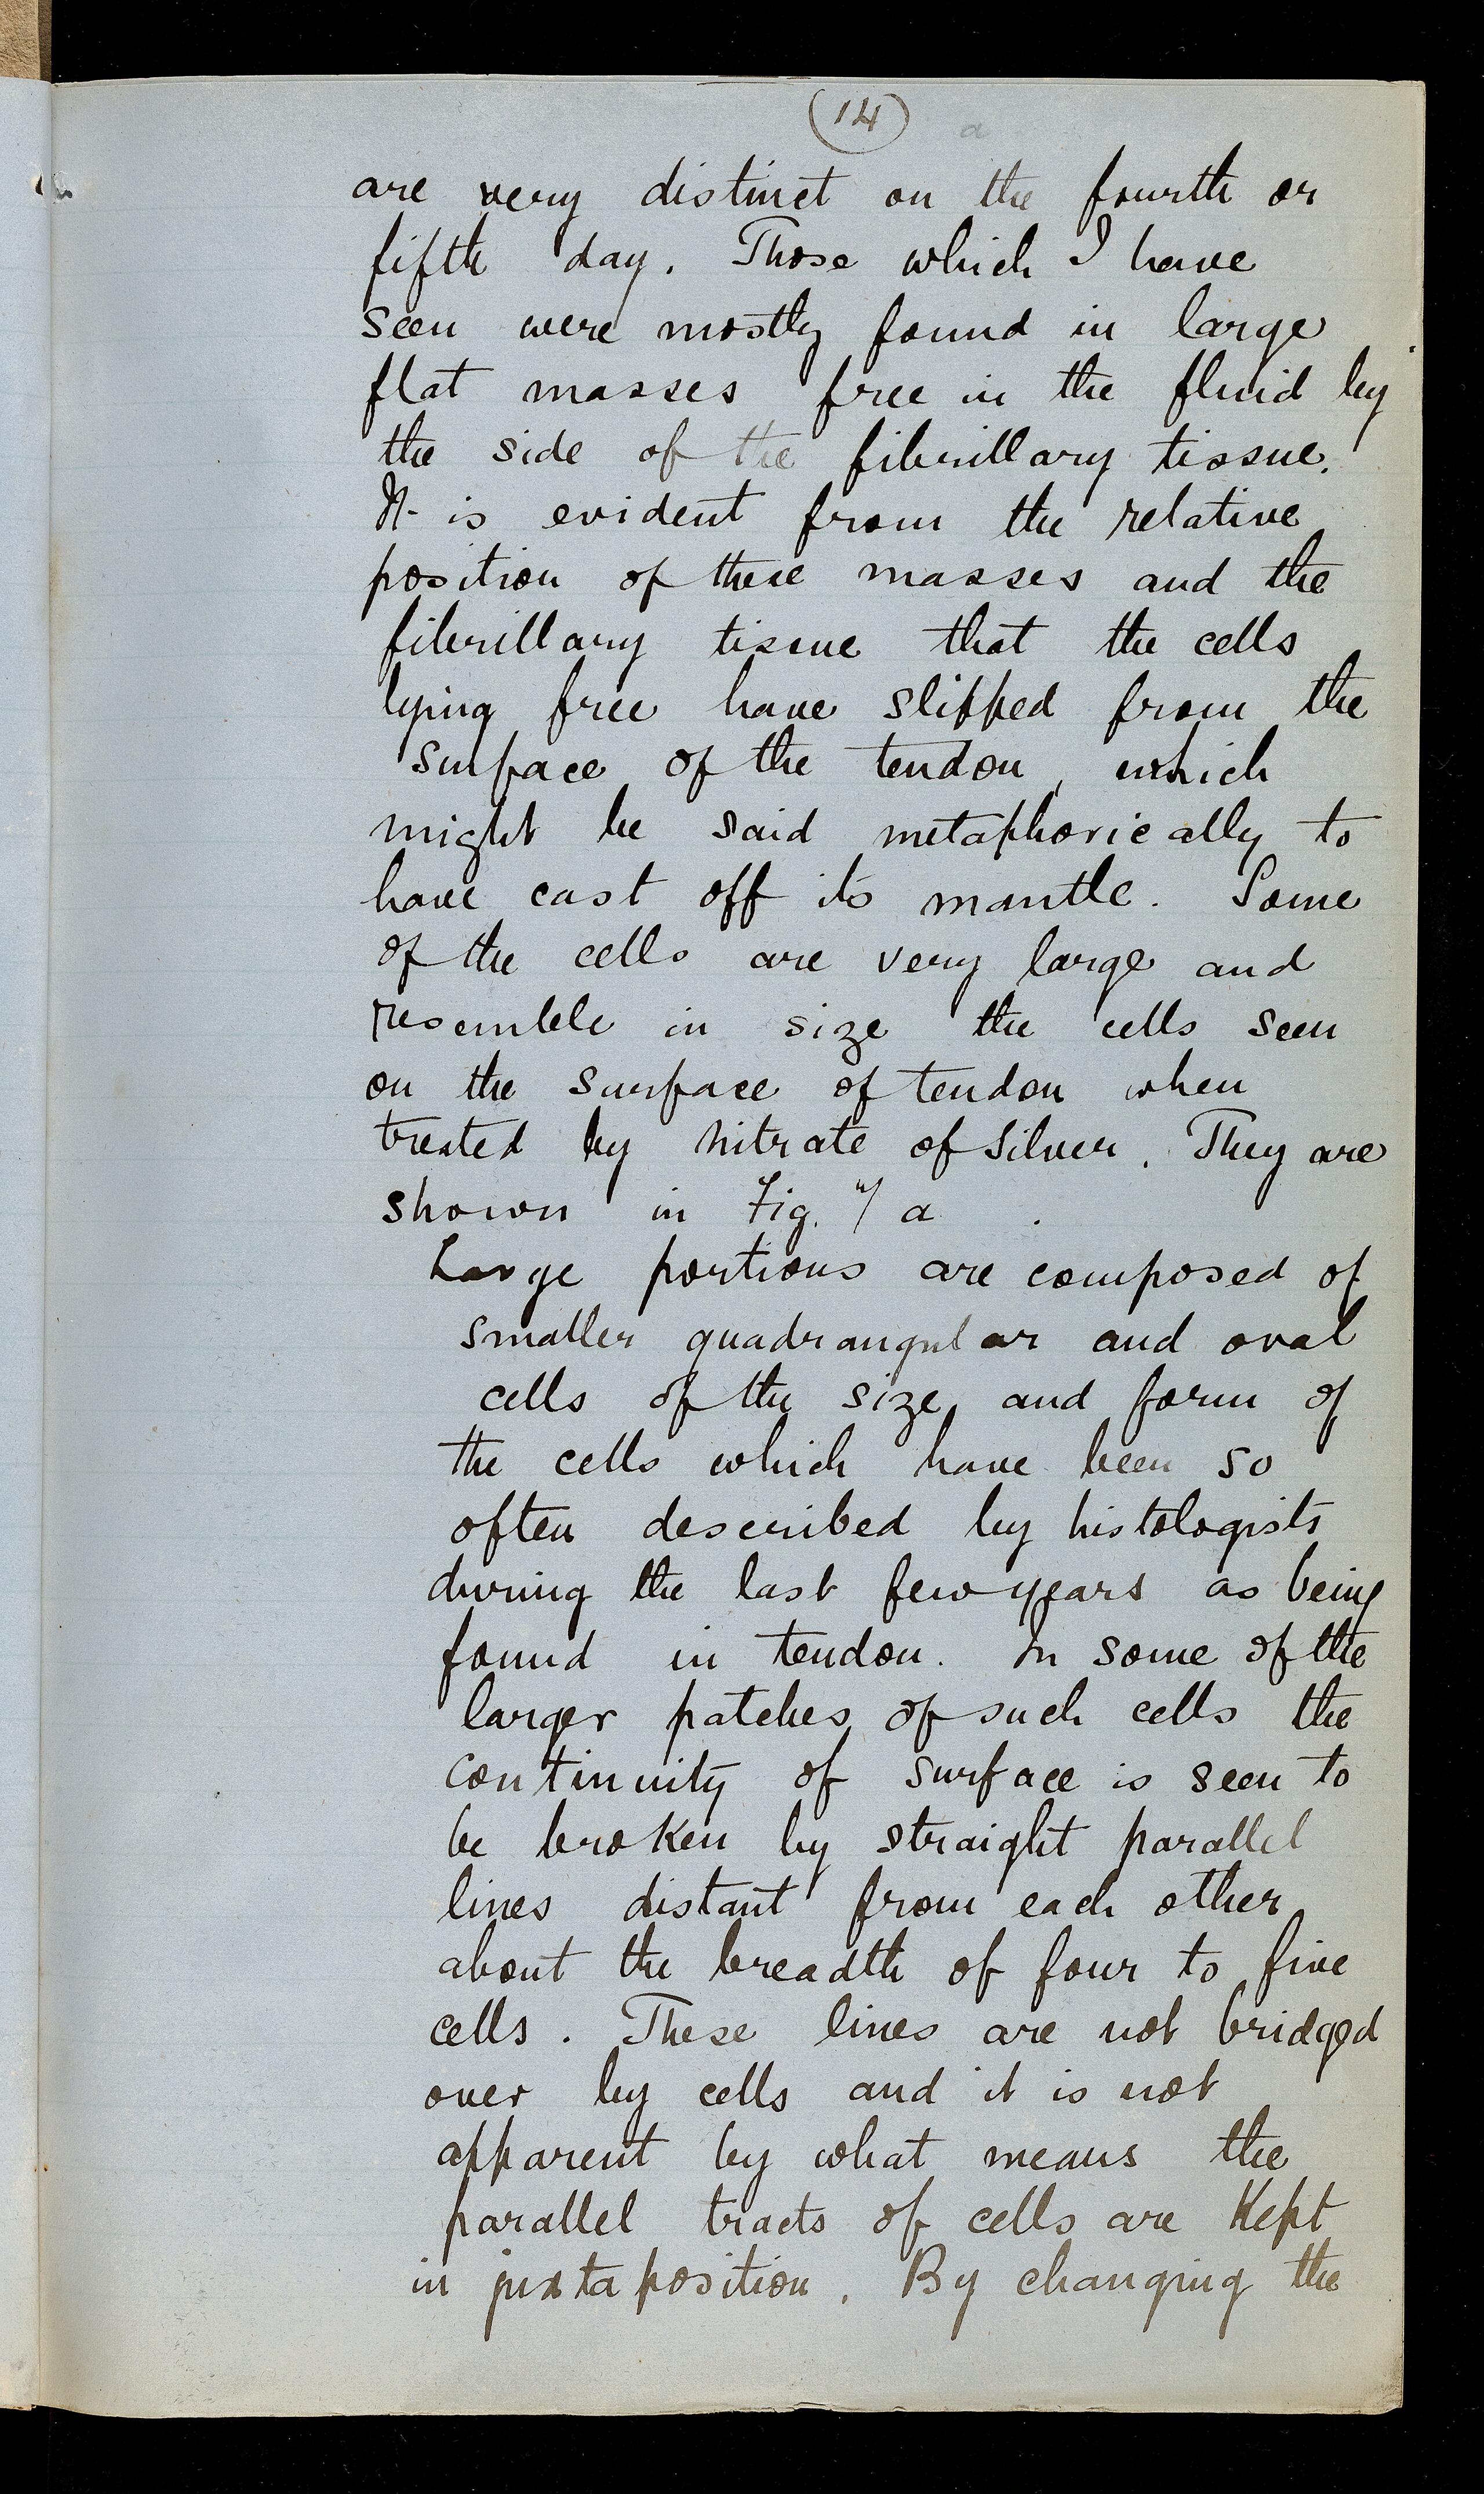 (14) a
are very distinct on the fourth or
fifth day. Those which I have
seen were mostly found in large
flat masses free in the fluid by
the side of the fibrillary tissue.
It is evident from the relative
position of these masses and the
fibrillary tissue that the cells
lying free have slipped from the
surface of the tendon, which
might be said metaphorically to
have cast off its mantle. Some
of the cells are very large and
resemble in size the cells seen
on the surface of tendon when
treated by nitrate of silver. They are
shown in Fig. a.
Large portions are composed of
smaller quadrangular and oval
cells of the size and form of
the cells which have been so
often described by histologists
during the last few years as being
found in tendon. In some of the
larger patches of such cells the
continuity of surface is seen to
be broken by straight parallel
lines distant from each other
about the breadth of four to five
cells. These lines are not bridged
over by cells and it is not
apparent by what means the
parallel tracts of cells are kept
in juxtaposition. By changing the